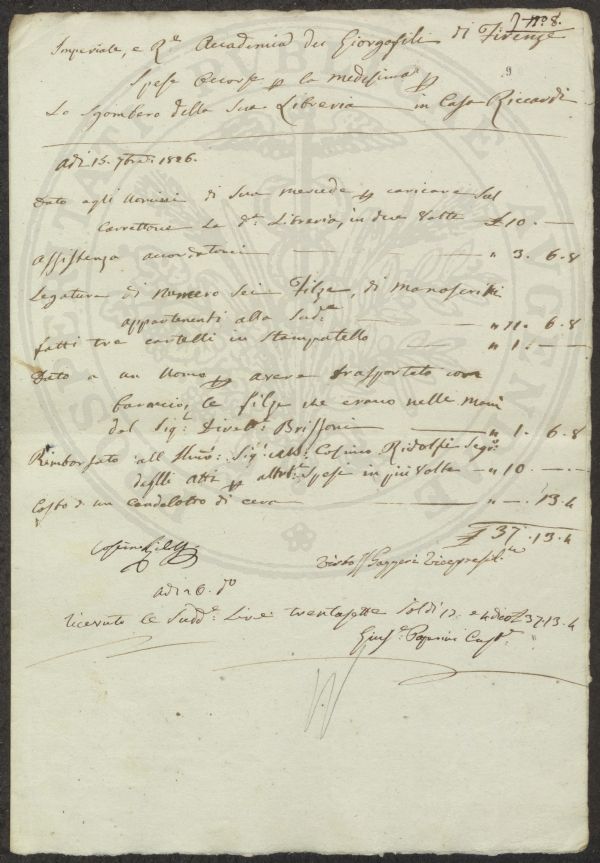 J n.° 8.
9
Imperiale, e R.e Accademia dei Giorgofili di Firenze
Spese Occorse p la medesima p
Lo Sgombero della Sua Libreria in Casa Riccardi
Adi 15. 7bre: 1826.
Dato agli Uomini di Sua mercede p caricare Sul
Carrettone La d.a Libreria, in due Volte £ 10. —
Assistenza accordatami — " 3. 6. 8
Legatura di Numero Sei Filze, di Manoscritti
appartenenti alla Sud.a — " 11. 6. 8
fatti tre cartelli in Stampatello — " 1. —
Dato a un Uomo p avere trasportato con
le filze che erano nelle Mani
del Sig.r Dirett.: — " 1. 6. 8
Rimborsato all Illmo: Sig.r Cosimo Ridolfi Seg.o
degli Atti p altre Spese in più Volte — " 10. — . —
Costo d un Candelotto di cera — " — . 13. 4
£ 37. 13. 4
Visto Gazzeri Vicepresid.te
Adi d.o
Ricevuto le Sudd.e: Lire: trentasette Soldi 13. e 4 £ 37. 13. 4
Gius.e Cust.e
PROSPERITATI PUBLICAE AUGENDAE